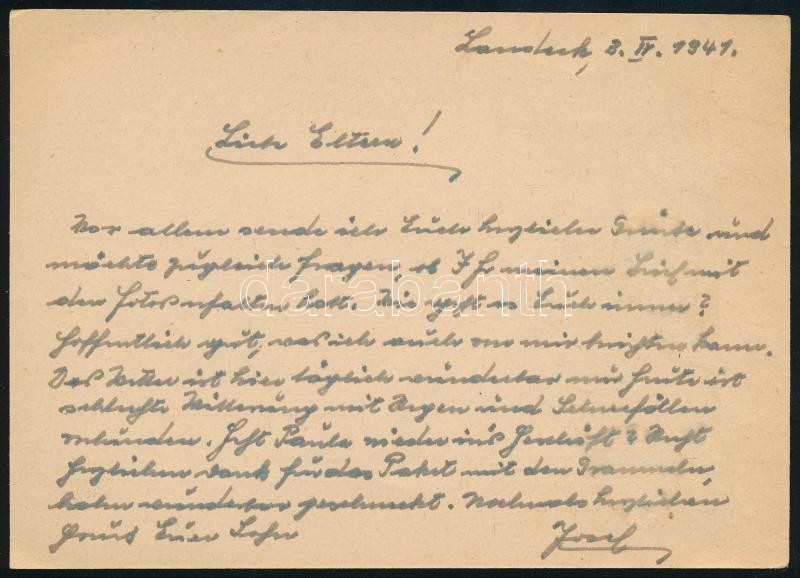 Landeck, 2. IV. 1941.
Liebe Eltern!
Vor allem sende ich Euch herzliche Grüße und
möchte zugleich fragen, ob Ihr meinen Brief mit
den Fotos erhalten habt. Wie geht es Euch immer?
Hoffentlich gut, was ich auch von mir berichten kann.
Das Wetter ist hier täglich wunderbar nur heute ist
schlechte Witterung mit Regen und Schneefällen
verbunden. Geht Paula wieder ins Geschäft?
herzlichen Dank für das Paket mit den Grammeln,
haben wunderbar geschmeckt. Nochmals herzlichen
Gruß Euer Sohn
Josef
darabanth